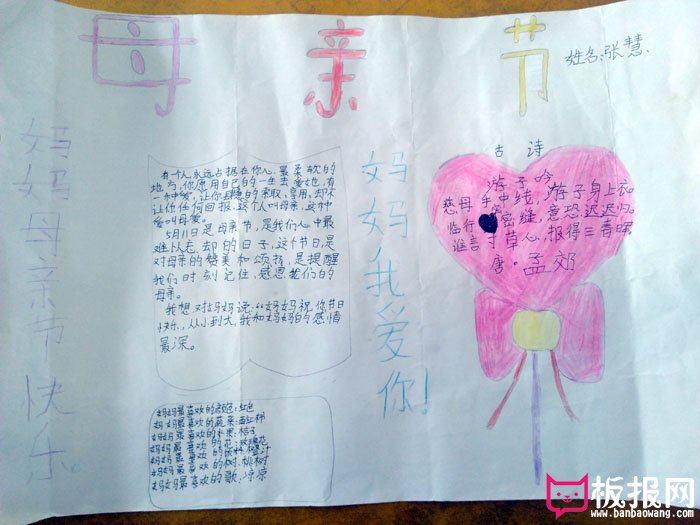 母亲节
姓名:张慧
妈妈母亲节快乐。
有个人永远占据在你心最柔软的
地方,你愿用自己的一生去爱她,有
一种爱,让你肆意的索取、享用,却不
让你任何回报,这个人叫母亲,这种
爱叫母爱。
5月11日是母亲节,是我们心中最
难以忘却的日子,这个节日,是
对母亲的赞美和颂扬,是提醒
我们时刻记住,感恩我们的
母亲。
我想对妈妈说:“妈妈祝你节日
快乐,从小到大,我和妈妈的感情
最深。
妈妈我爱你!
古诗
游子吟
慈母手中线,游子身上衣。
临行密密缝,意恐迟迟归。
谁言寸草心,报得三春晖
唐·孟郊
妈妈最喜欢的颜色:红色
妈妈最喜欢的蔬菜:西红柿
妈妈最喜欢的水果:桔子
妈妈最喜欢的花:玫瑰花
妈妈最喜欢的饮料:
妈妈最喜欢的树:桃树
妈妈最喜欢的歌:
板报网
www.banbaowang.com